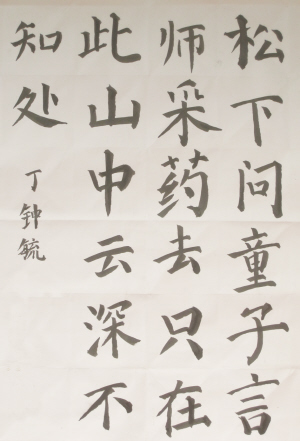 松下问童子言
师采药去只在
此山中云深不
知处
丁钟毓